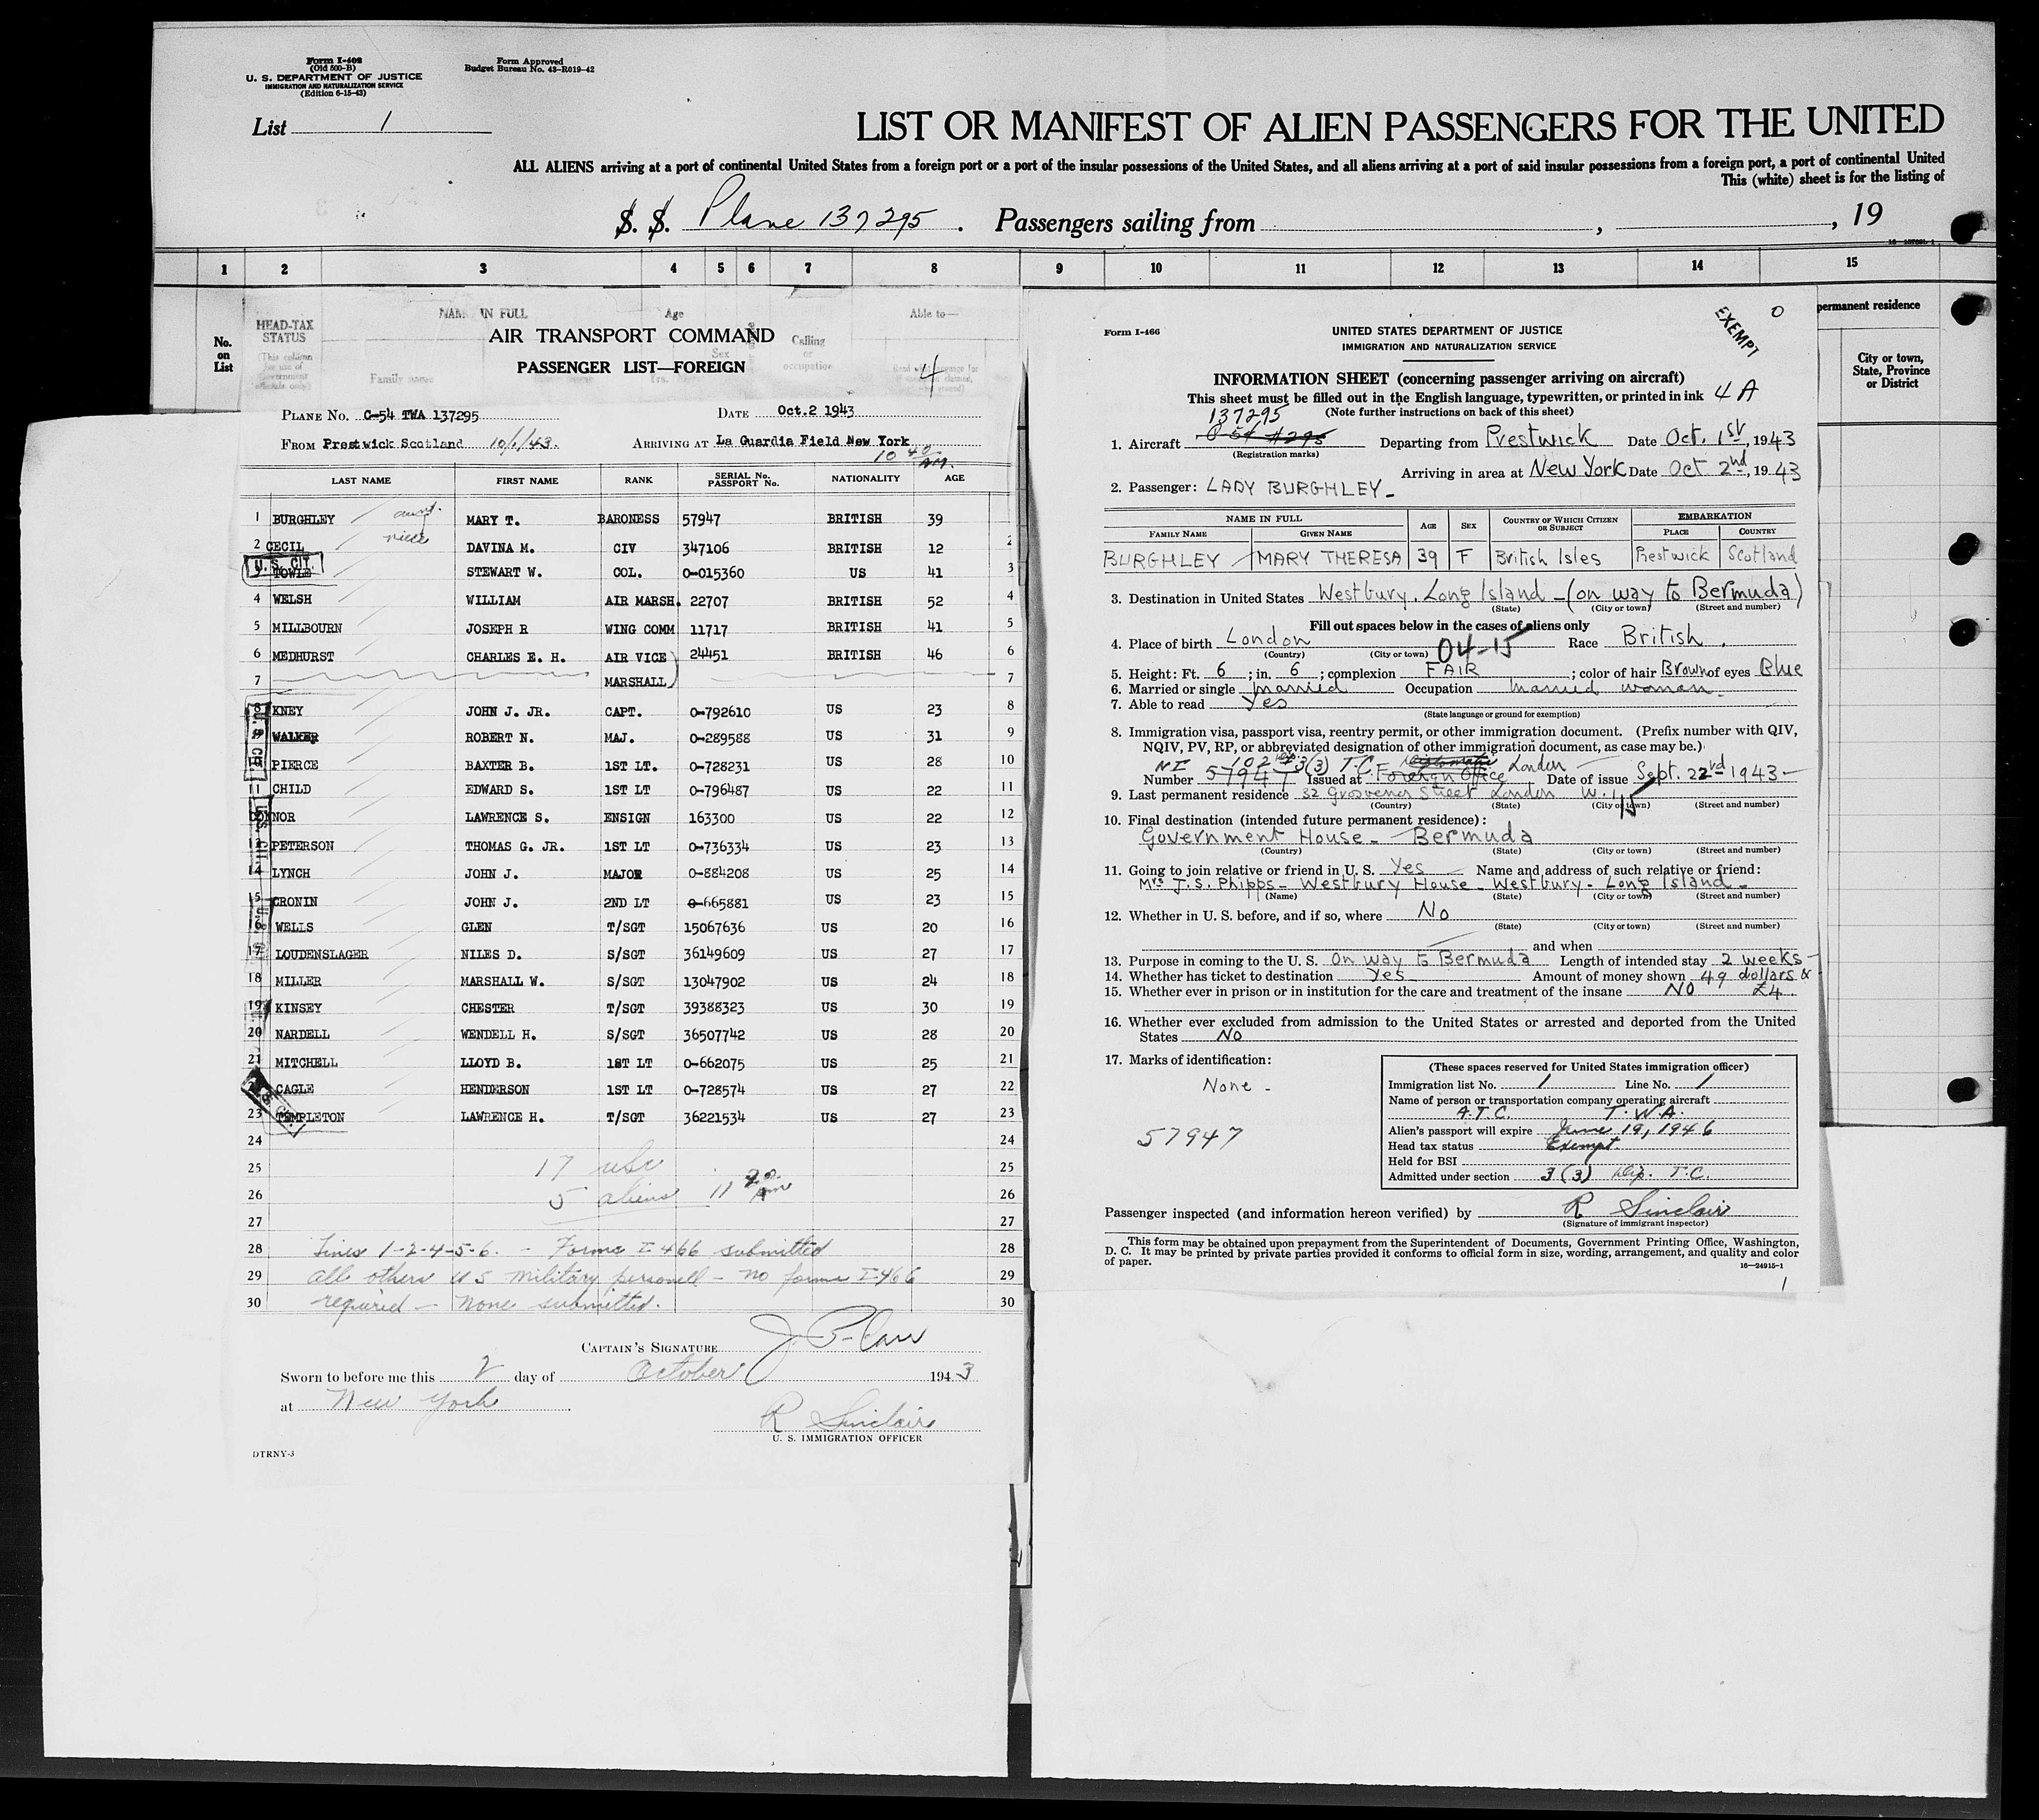 Form I-402
(Old 500-B)
U. S. DEPARTMENT OF JUSTICE
IMMIGRATION AND NATURALIZATION SERVICE
(Edition 6-15-43)
Form Approved
Budget Bureau No. 43-R019-42
List 1
LIST OR MANIFEST OF ALIEN PASSENGERS FOR THE UNITED
ALL ALIENS arriving at a port of continental United States from a foreign port or a port of the insular possessions of the United States, and all aliens arriving at a port of said insular possessions from a foreign port, a port of continental United
This (white) sheet is for the listing of
S. S. Plane 137295 . Passengers sailing from , , 19
1 2 3 4 5 6 7 8 9 10 11 12 13 14 15
No. on List
HEAD-TAX STATUS
NAME IN FULL
Family name
Age
Sex
Calling or occupation
Able to—
permanent residence
City or town, State, Province or District
AIR TRANSPORT COMMAND
PASSENGER LIST—FOREIGN
4
PLANE NO. C-54 TWA 137295 DATE Oct.2 1943
FROM Prestwick Scotland 10/1/43. ARRIVING AT La Guardia Field New York
10 40 AM.
LAST NAME FIRST NAME RANK SERIAL NO. PASSPORT NO. NATIONALITY AGE
1 BURGHLEY aunt. MARY T. BARONESS 57947 BRITISH 39
2 CECIL niece DAVINA M. CIV 347106 BRITISH 12 2
U. S. CIT.
3 TOWLE STEWART W. COL. 0-015360 US 41 3
4 WELSH WILLIAM AIR MARSH. 22707 BRITISH 52 4
5 MILLBOURN JOSEPH R WING COMM 11717 BRITISH 41 5
6 MEDHURST CHARLES E. H. AIR VICE 24451 BRITISH 46 6
7 MARSHALL) 7
8 KNEY JOHN J. JR. CAPT. 0-792610 US 23 8
9 WALKER ROBERT N. MAJ. 0-289588 US 31 9
10 PIERCE BAXTER B. 1ST LT. 0-728231 US 28 10
11 CHILD EDWARD S. 1ST LT 0-796487 US 22 11
CONNOR LAWRENCE S. ENSIGN 163300 US 22 12
13 PETERSON THOMAS G. JR. 1ST LT 0-736334 US 23 13
14 LYNCH JOHN J. MAJOR 0-884208 US 25 14
15 CRONIN JOHN J. 2ND LT 0-665881 US 23 15
16 WELLS GLEN T/SGT 15067636 US 20 16
17 LOUDENSLAGER NILES D. S/SGT 36149609 US 27 17
18 MILLER MARSHALL W. S/SGT 13047902 US 24 18
19 KINSEY CHESTER T/SGT 39388323 US 30 19
20 NARDELL WENDELL H. S/SGT 36507742 US 28 20
21 MITCHELL LLOYD B. 1ST LT 0-662075 US 25 21
CAGLE HENDERSON 1ST LT 0-728574 US 27 22
23 TEMPLETON LAWRENCE H. T/SGT 36221534 US 27 23
24 24
25 17 usc 25
26 5 aliens 11 20 am 26
27 27
28 Lines 1-2-4-5-6. - Forms I-466 submitted 28
29 All others U S military personell - no forms I-466 29
30 required - none submitted. 30
CAPTAIN'S SIGNATURE J. P. Carr
Sworn to before me this 2 day of October 1943
at New York
R Sinclair
U. S. IMMIGRATION OFFICER
DTRNY-3
Form I-466
UNITED STATES DEPARTMENT OF JUSTICE
IMMIGRATION AND NATURALIZATION SERVICE
EXEMPT
0
INFORMATION SHEET (concerning passenger arriving on aircraft)
This sheet must be filled out in the English language, typewritten, or printed in ink 4 A
(Note further instructions on back of this sheet)
137295
1. Aircraft C-54 #295 Departing from Prestwick Date Oct. 1st, 1943
(Registration marks)
Arriving in area at New York Date Oct 2nd, 1943
2. Passenger: LADY BURGHLEY_
NAME IN FULL AGE SEX COUNTRY OF WHICH CITIZEN OR SUBJECT EMBARKATION
FAMILY NAME GIVEN NAME PLACE COUNTRY
BURGHLEY MARY THERESA 39 F British Isles Prestwick Scotland
3. Destination in United States Westbury. Long Island - (on way to Bermuda)
(State) (City or town) (Street and number)
Fill out spaces below in the cases of aliens only
4. Place of birth London 04-15 Race British.
(Country) (City or town)
5. Height: Ft. 6; in. 6; complexion FAIR; color of hair Brown of eyes Blue
6. Married or single married Occupation married woman.
7. Able to read Yes
(State language or ground for exemption)
8. Immigration visa, passport visa, reentry permit, or other immigration document. (Prefix number with QIV,
NQIV, PV, RP, or abbreviated designation of other immigration document, as case may be.)
NI 102 3(3) T.C. Diplomatic London
Number 57947 Issued at Foreign Office Date of issue Sept. 22nd 1943-
9. Last permanent residence 32 Grosvenor Street London W. 1
15
(Country) (State) (City or town) (Street and number)
10. Final destination (intended future permanent residence):
Government House - Bermuda
(Country) (State) (City or town) (Street and number)
11. Going to join relative or friend in U. S. Yes Name and address of such relative or friend:
Mrs J. S. Phipps - Westbury House - Westbury - Long Island -
(Name) (State) (City or town) (Street and number)
12. Whether in U. S. before, and if so, where No
(State) (City or town) (Street and number)
and when
13. Purpose in coming to the U. S. On way to Bermuda Length of intended stay 2 weeks -
14. Whether has ticket to destination Yes Amount of money shown 49 dollars &
15. Whether ever in prison or in institution for the care and treatment of the insane NO £4.
16. Whether ever excluded from admission to the United States or arrested and deported from the United
States No
17. Marks of identification:
None -
57947
(These spaces reserved for United States immigration officer)
Immigration list No. 1 Line No. 1
Name of person or transportation company operating aircraft
A.T.C. T.W.A.
Alien's passport will expire June 19, 1946
Head tax status Exempt
Held for BSI
Admitted under section 3(3) Dip. T.C.
Passenger inspected (and information hereon verified) by R Sinclair
(Signature of immigrant inspector)
This form may be obtained upon prepayment from the Superintendent of Documents, Government Printing Office, Washington,
D. C. It may be printed by private parties provided it conforms to official form in size, wording, arrangement, and quality and color
of paper.
16—24915-1
1